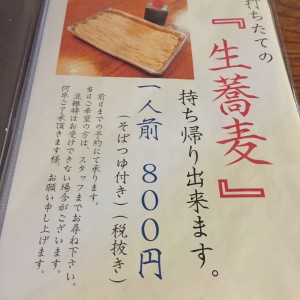 打ちたての
『生蕎麦』
持ち帰り出来ます。
一人前 800円
(そばつゆ付き)(税抜き)
前日までの予約にて承ります。
当日ご希望の方は、スタッフまでお尋ね下さい。
混雑時はお受けできない場合がございます。
何卒ご了承頂きます様、お願い申し上げます。